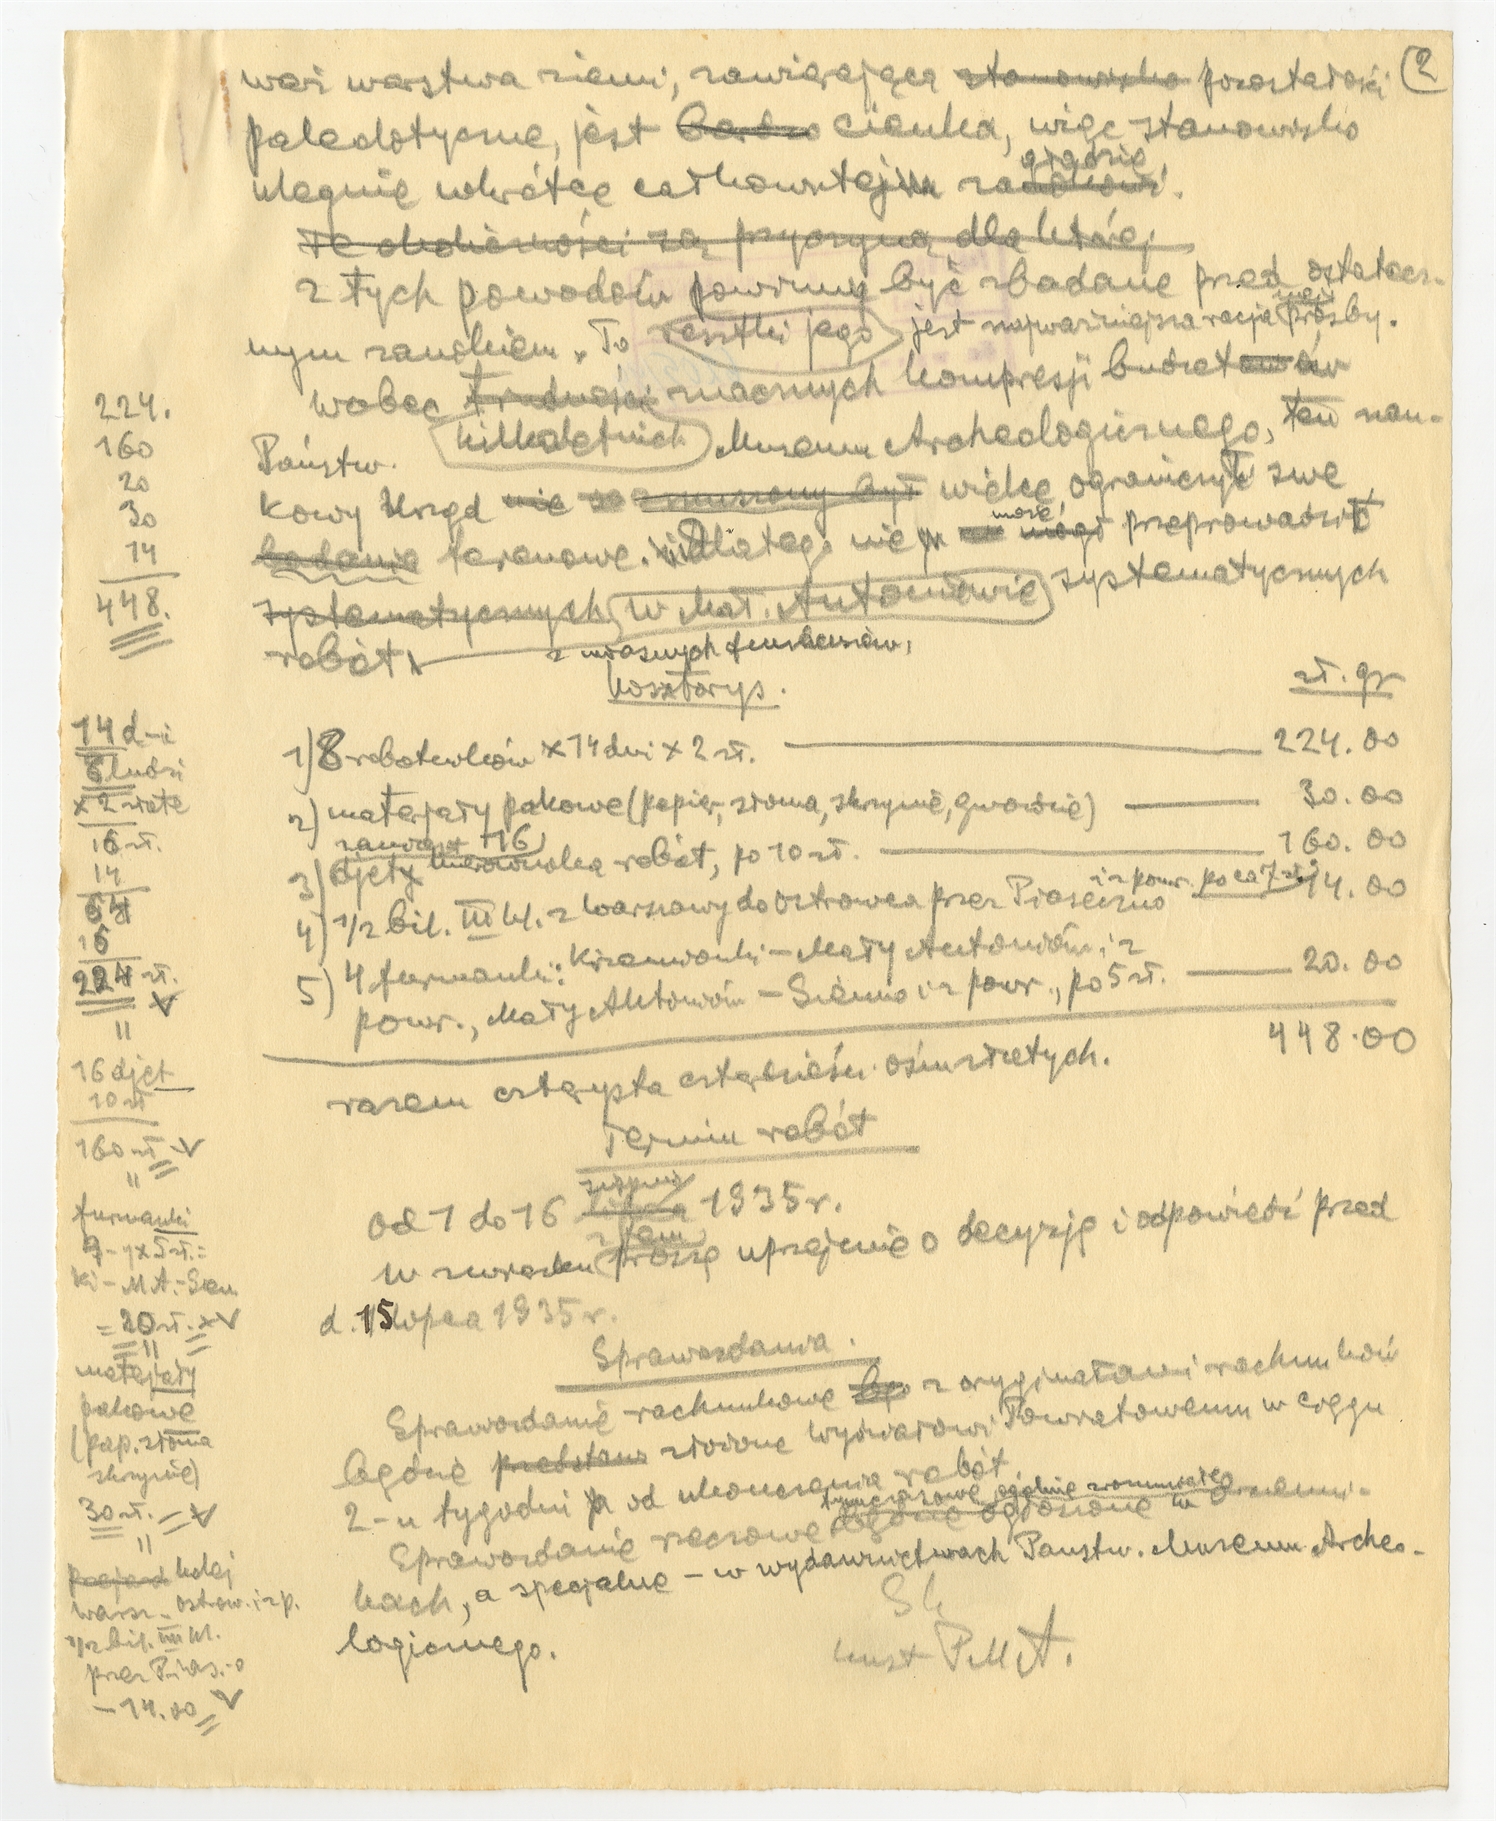 (2
waż warstwa ziemi, zawierająca stanowisko pozostałości
paleolotyczne, jest bardzo cienka, więc stanowisko
ulegnie wkrótce całkowitej
zagładzie.
Te okoliczności są przyczyną dla której
z tych powodów powinny być zbadane przed ostatecz-
nym zanikiem. To resztki jego jest najważniejsza racja mej prośby.
Wobec trudności znacznych kompresji budżetów
Państw. kilkuletnich Muzeum Archeologicznego, ten nau-
kowy Urząd nie zmuszony był wielce ograniczył swe
badania terenowe. Dlatego nie może mógł przeprowadzić
systematycznych w Mał. Antoniowie systematycznych
robót z własnych funduszów.
Kosztorys.
zł. gr
1) 8 robotników x 14 dni x 2 zł. 224.00
2) materjały pakowe (papier, słoma, skrzynie, gwoździe) 30.00
3) djety 16 kierownika robót, po 10 zł. 160.00
4) 1/2 bil. III kl. z Warszawy do Ostrowca przez Piaseczno i z powr. po ca 7 zł. 14.00
5) 4 furmanki: Krzemionki – Mały Antoniów i z
powr., Mały Antoniów – Sienno i z powr., po 5 zł. 20.00
448.00
razem czterysta czterdzieści ośm złotych.
Termin robót
od 1 do 16 lipca sierpnia 1935 r.
W związku z tem proszę uprzejmie o decyzję i odpowiedź przed
d. 15 lipca 1935 r.
Sprawozdania.
Sprawozdanie rachunkowe z oryginałami rachunków
będzie przedstaw złożone Wydziałowi Powiatowemu w ciągu
2-u tygodni od ukończenia robót
Sprawozdanie rzeczowe tymczasowe, ogólnie zrozumiałe
będzie ogłoszone w dzienni-
kach, a specjalne – w wydawnictwach Państw. Muzeum Archeo-
logicznego.
Sk
kust PMA.
224.
160
20
30
14
448.
14 d-i
8 ludzi
x 2 złote
16 zł.
14
64
16
224 zł. V
"
16 djet
10 zł
160 zł = V
"
furmanki
Ki – M A. – Sien
= 20 zł. x V
"
materjały
pakowe
(pap. słoma
skrzynie)
30 zł. = V
"
przejazd kolej
Warsz. – Ostrow. i z p.
1/2 bil. III kl.
przez Pias.-o
– 14.00 = V